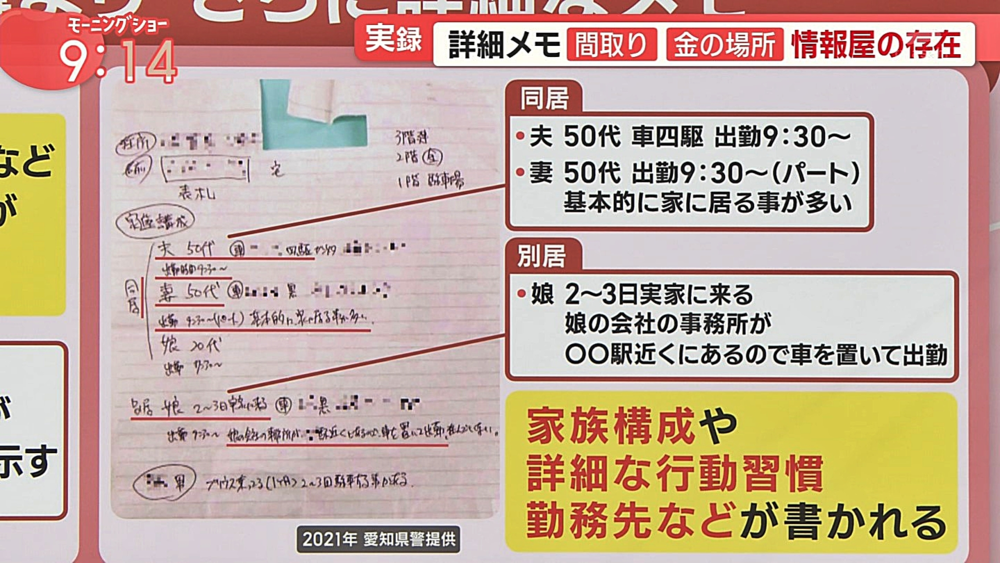 モーニングショー
9:14
実録 詳細メモ 間取り 金の場所 情報屋の存在
さらに詳細なメモ
など
が
が
示す
住所
名前
宅
表札
3階建
2階
1階 駐車場
家族構成
夫 50代
出勤時間 9:30〜
同居
妻 50代
黒
出勤 9:30〜(パート) 基本的に家に居る事が多い
娘 20代
出勤
別居 娘 2〜3日
黒
出勤 9:30〜 娘の会社の事務所が
駅近くにあるので車を置いて出勤
2〜3回駐車する事がある
2021年 愛知県警提供
同居
・夫 50代 車四駆 出勤9:30〜
・妻 50代 出勤9:30〜(パート)
基本的に家に居る事が多い
別居
・娘 2〜3日実家に来る
娘の会社の事務所が
〇〇駅近くにあるので車を置いて出勤
家族構成や
詳細な行動習慣
勤務先などが書かれる